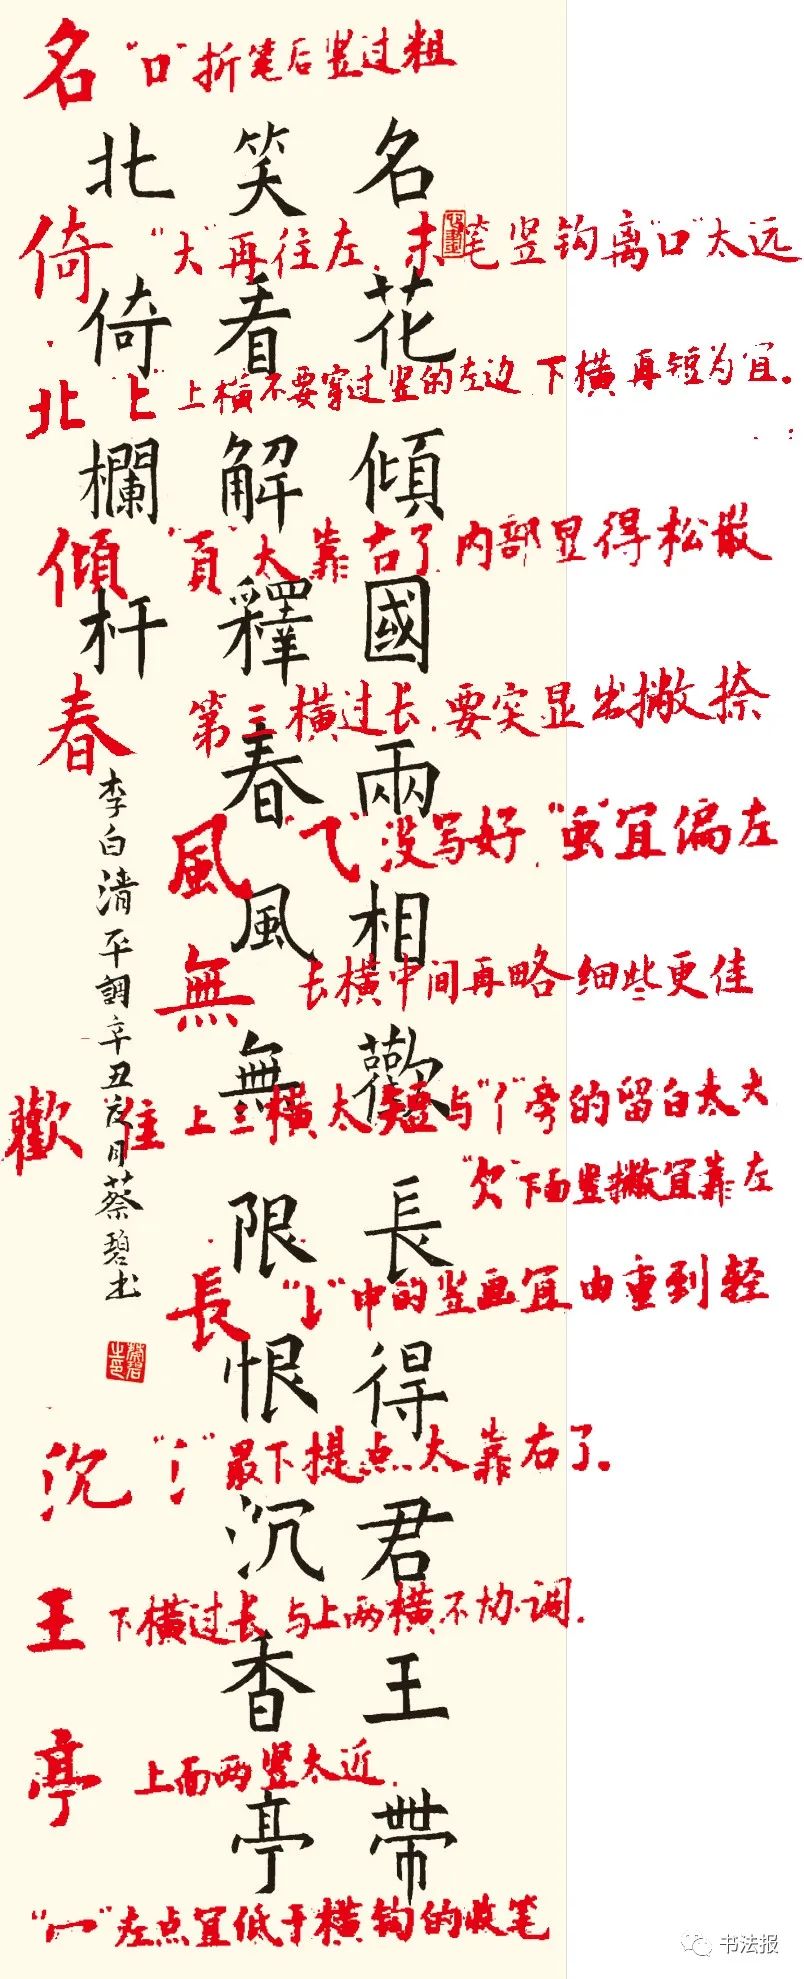 名花傾國兩相歡長得君王帶
笑看解釋春風無限恨沉香亭
北倚欄杆
李白清平調辛丑夏月蔡碧书
蔡碧之印
名 "口"折笔后竖过粗
倚 "大"再往左.末笔竖钩离"口"太远
北 "上"上横不要穿过竖的左边 下横再短为宜.
傾 "頁"太靠右了.内部显得松散
春 第三横过长.要突显出撇捺
風 "乁"没写好."虫"宜偏左
無 长横中间再略细些更佳
歡 隹上三横太短与"亻"旁的留白太大
"欠"下面竖撇宜靠左
長 "𠄌"中的竖画宜由重到轻
沉 "氵"最下提点太靠右了.
王 下横过长与上两横不协调.
亭 上面两竖太近.
"冖"左点宜低于横钩的收笔
书法报